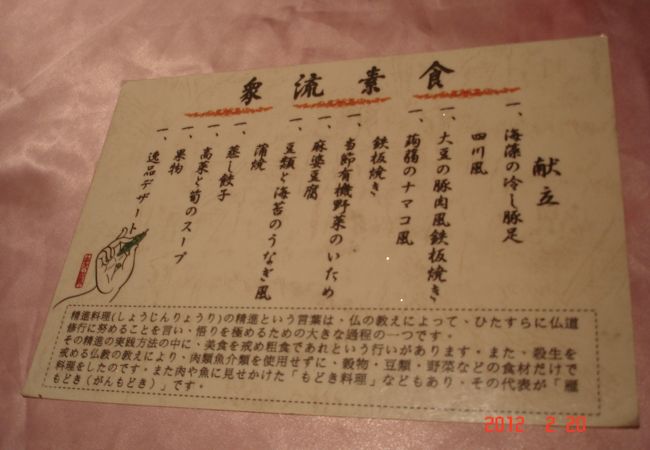 食素流衆
献立
一、海藻の冷し豚足
四川風
一、大豆の豚肉風鉄板焼き
一、蒟蒻のナマコ風
鉄板焼き
一、当節有機野菜のいため
一、麻婆豆腐
一、豆類と海苔のうなぎ風
蒲焼
一、蒸し餃子
一、高菜と筍のスープ
一、果物
一、逸品デザート
精進料理(しょうじんりょうり)の精進という言葉は、仏の教えによって、ひたすらに仏道
修行に努めることを言い、悟りを極めるための大きな過程の一つです。
その精進の実践方法の中に、美食を戒め粗食であれという行いがあります。また、殺生を
戒める仏教の教えにより、肉類魚介類を使用せずに、穀物・豆類・野菜などの食材だけで
料理をしたのです。また肉や魚に見せかけた「もどき料理」などもあり、その代表が「雁
もどき（がんもどき）」です。
2012 2 20